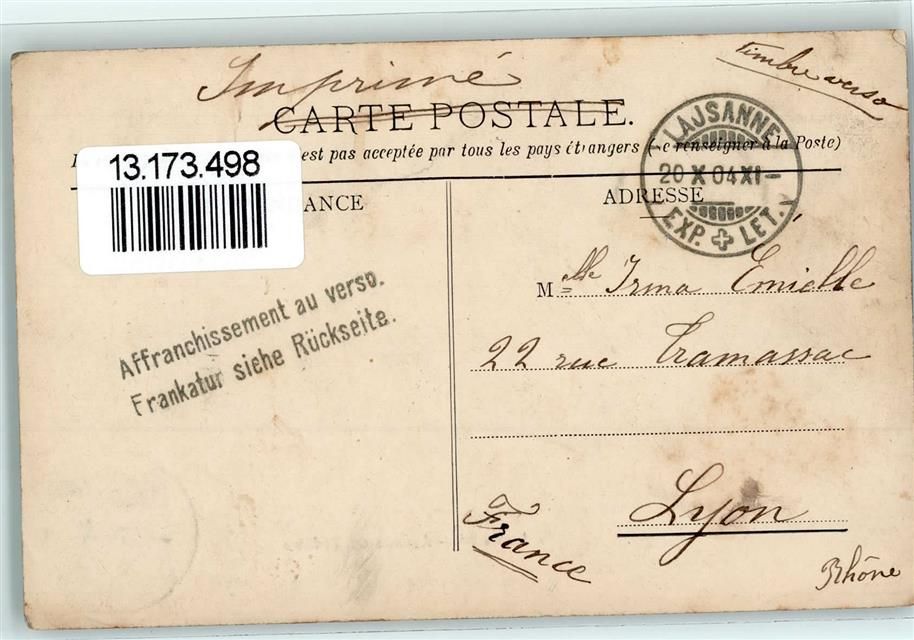 Imprimé
Timbre verso
CARTE POSTALE.
est pas acceptée par tous les pays étrangers (Se renseigner à la Poste)
13.173.498
LAUSANNE
20 X 04 XI–
EXP. LET.
ANCE
ADRESSE
Affranchissement au verso.
Frankatur siehe Rückseite.
Mlle Irma Emielle
22 rue Tramassac
Lyon
France
Rhône